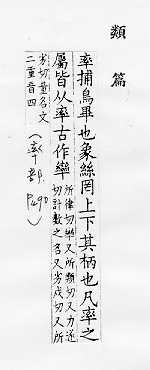 類篇
率捕鳥畢也象絲罔上下其柄也凡率之
屬皆从率古作
所律切又所類切又力遂
切計數之名又劣戌切又所
劣切量名文
二重音四
(率部. P490)